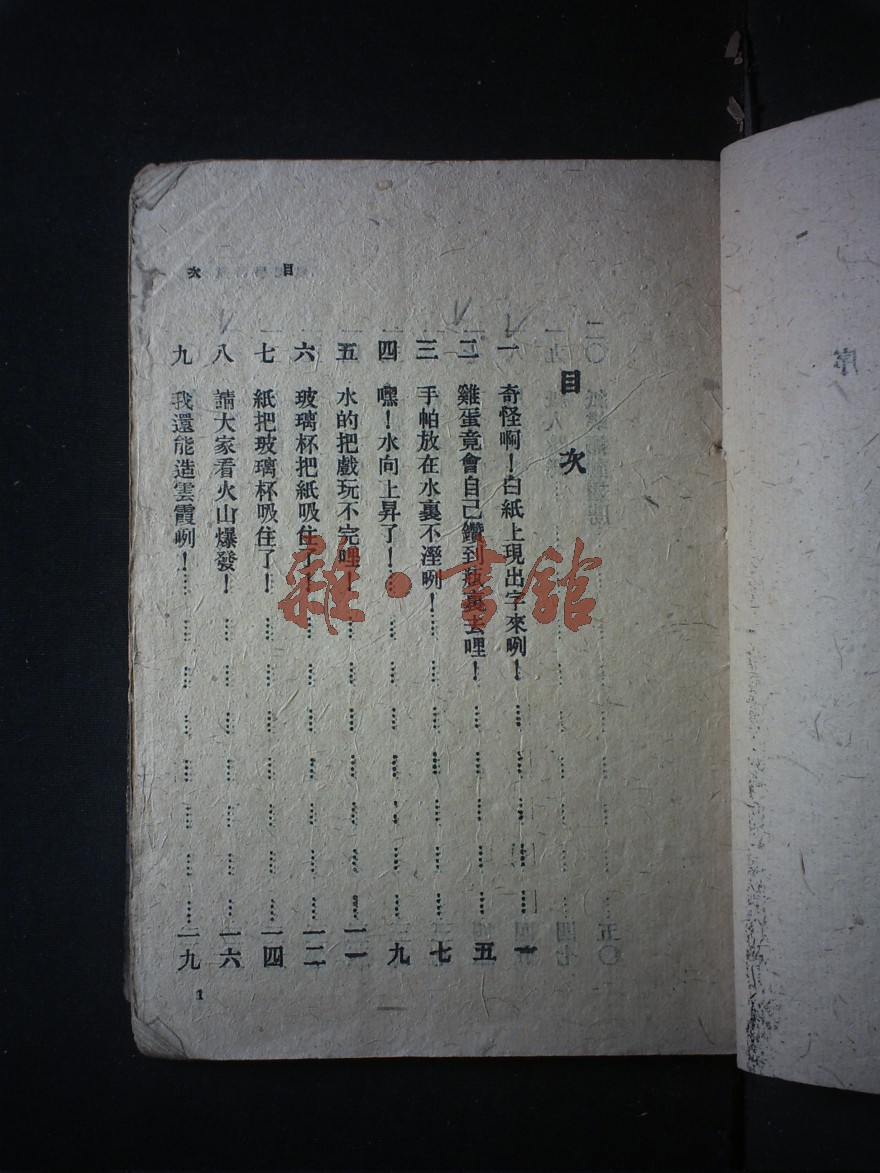 目次
目次
一 奇怪啊！白紙上現出字來咧！……一
二 雞蛋竟會自己鑽到瓶裏去哩！……五
三 手帕放在水裏不溼咧！……七
四 嘿！水向上昇了！……九
五 水的把戲玩不完哩！……一一
六 玻璃杯把紙吸住了！……一二
七 紙把玻璃杯吸住了！……一四
八 請大家看火山爆發！……一六
九 我還能造雲霞咧！……一九
1
序
雜·書館